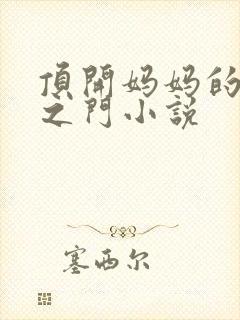 頂開妈妈的
之門小説
塞西尔